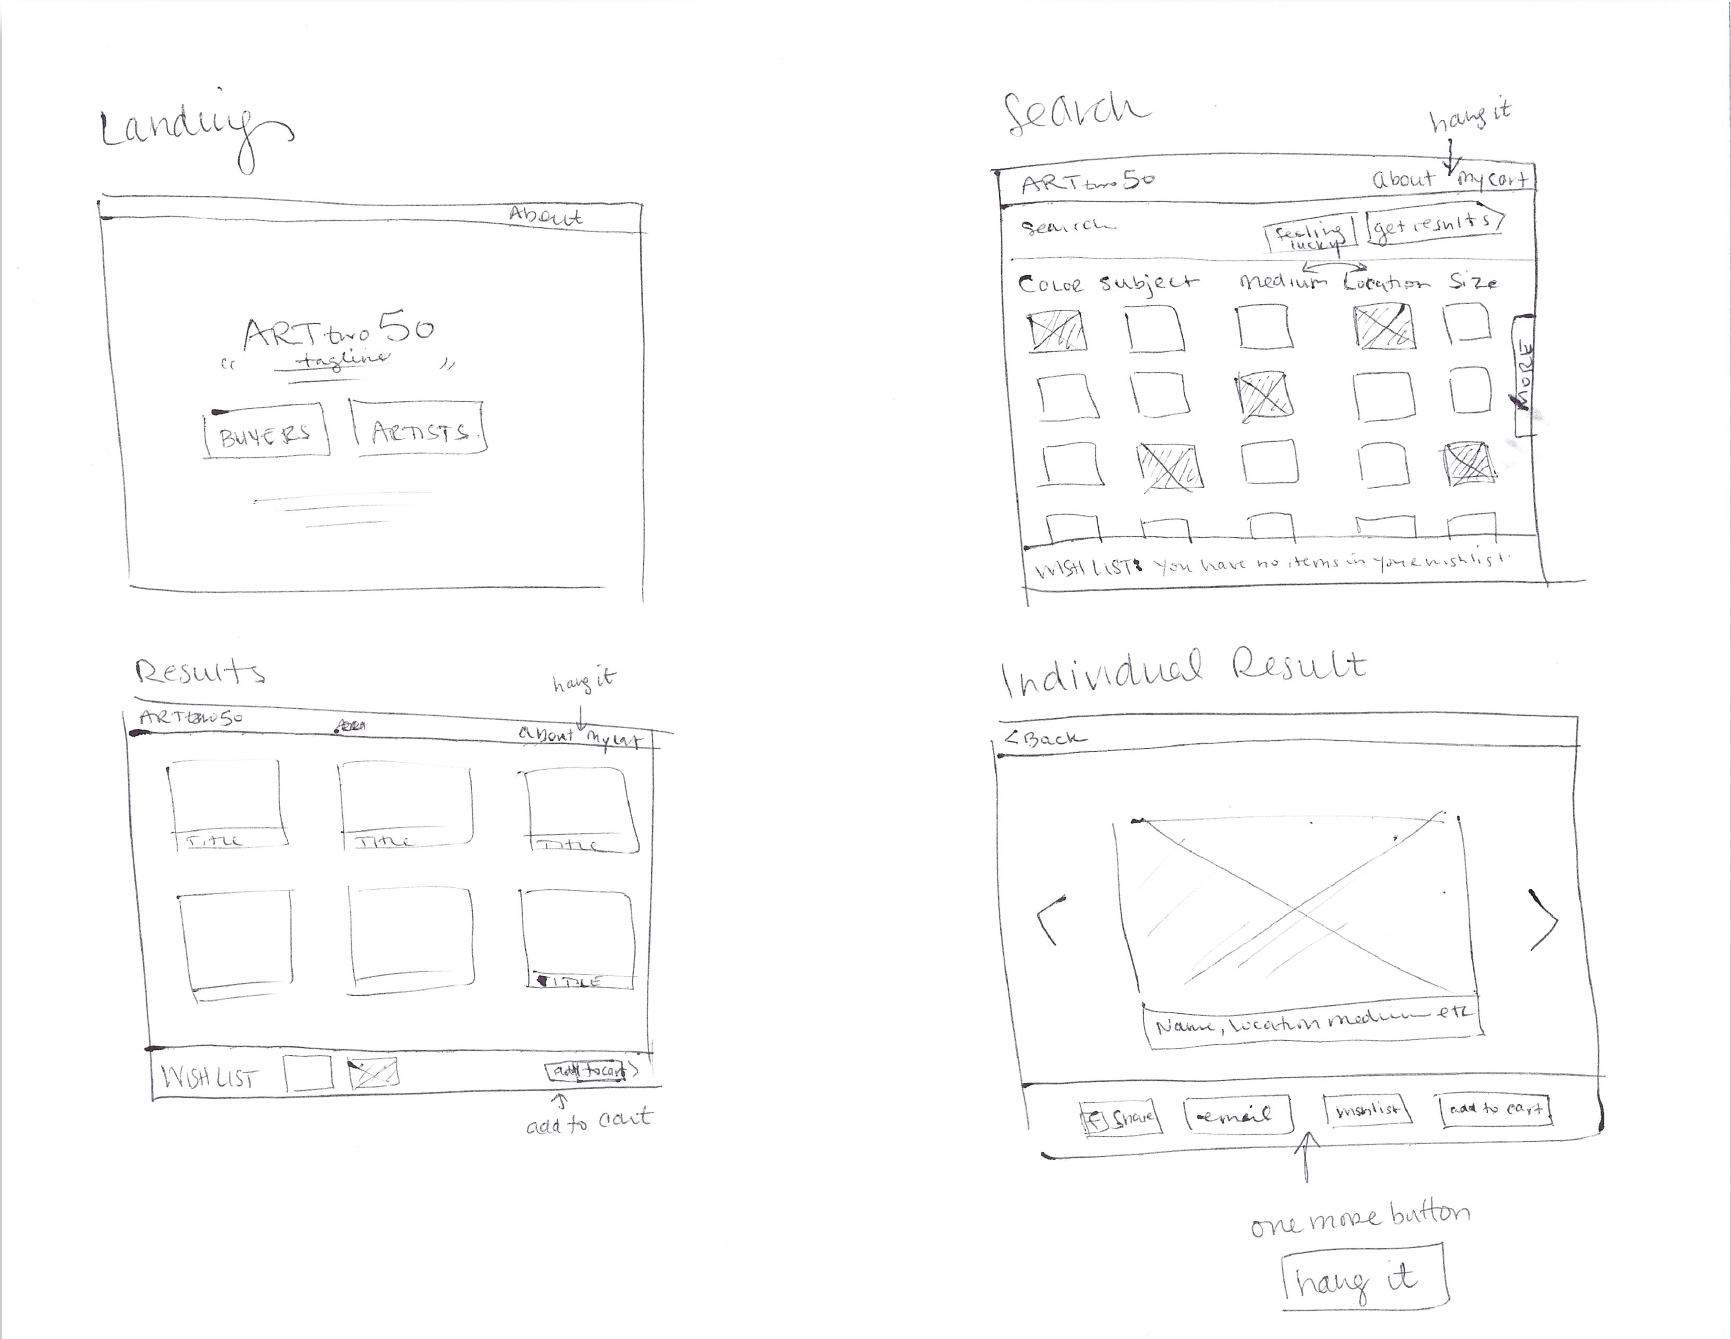 Landing
About
ARTtwo50
" tagline "
BUYERS ARTISTS
Search
hang it
ARTtwo50 about my cart
search feeling lucky get results >
Color Subject Medium Location Size
MORE
WISH LIST: You have no items in your wishlist.
Results
hang it
ARTtwo50 about my cart
Title Title Title
TITLE
WISH LIST add to cart >
add to cart
Individual Result
< Back
< >
Name, Location medium etc
f share email wishlist add to cart
one more button
hang it